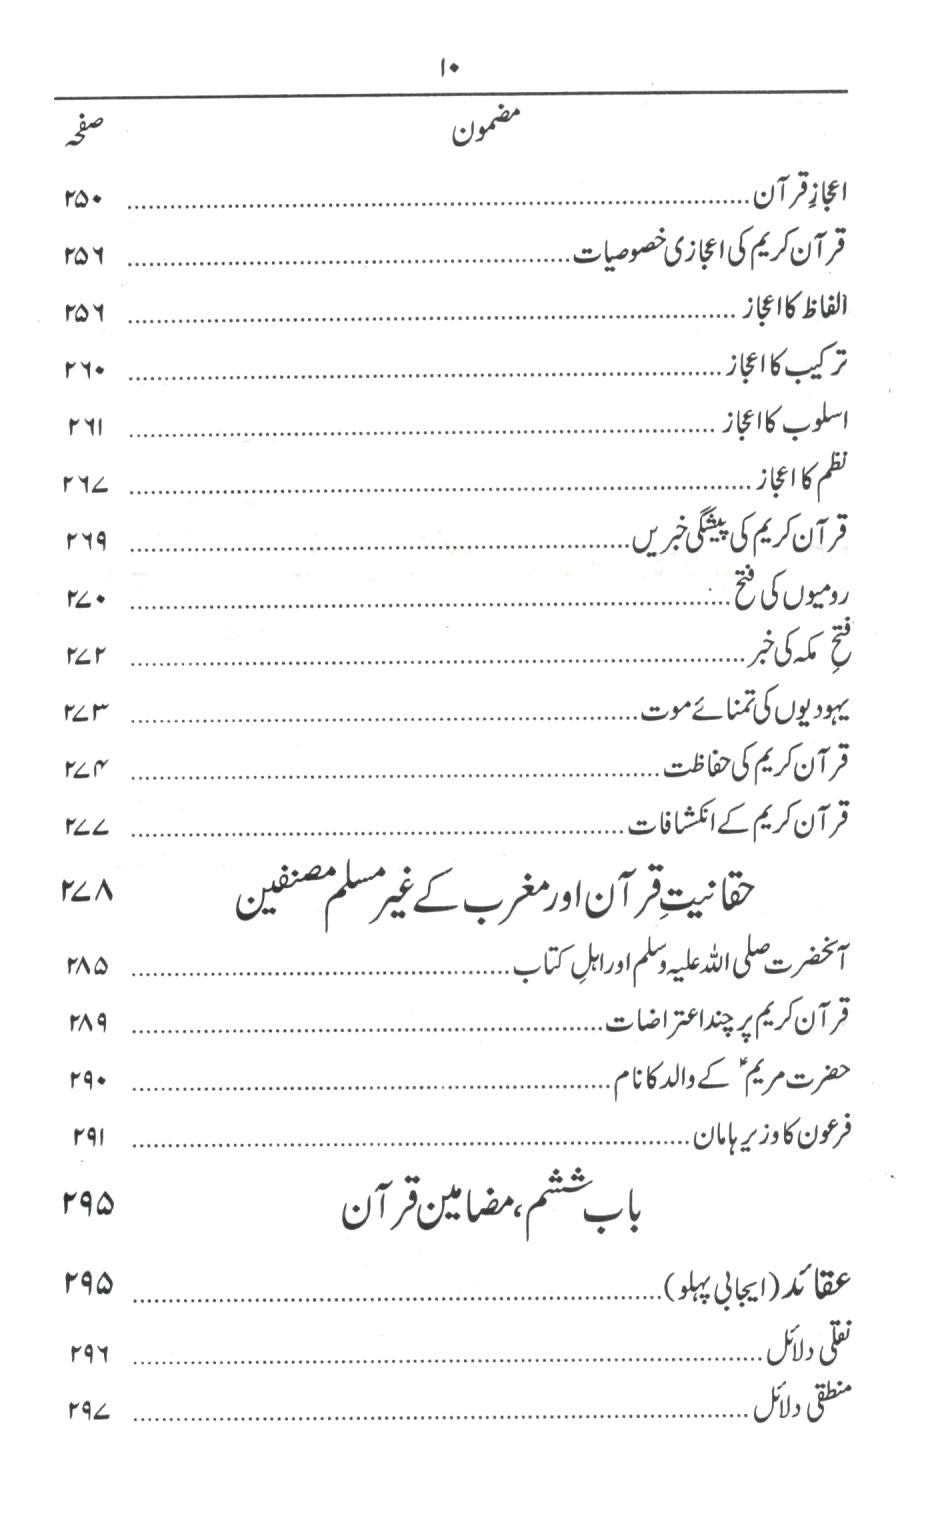 ۱۰
مضمون صفحہ
اعجازِ قرآن ........ ۲۵۰
قرآن کریم کی اعجازی خصوصیات ........ ۲۵۶
الفاظ کا اعجاز ........ ۲۵۶
ترکیب کا اعجاز ........ ۲۶۰
اسلوب کا اعجاز ........ ۲۶۱
نظم کا اعجاز ........ ۲۶۷
قرآن کریم کی پیشگی خبریں ........ ۲۶۹
رومیوں کی فتح ........ ۲۷۰
فتحِ مکہ کی خبر ........ ۲۷۲
یہودیوں کی تمنائے موت ........ ۲۷۳
قرآن کریم کی حفاظت ........ ۲۷۴
قرآن کریم کے انکشافات ........ ۲۷۷
حقانیتِ قرآن اور مغرب کے غیر مسلم مصنفین ۲۷۸
آنحضرت صلی اللہ علیہ وسلم اور اہلِ کتاب ........ ۲۸۵
قرآن کریم پر چند اعتراضات ........ ۲۸۹
حضرت مریمؑ کے والد کا نام ........ ۲۹۰
فرعون کا وزیر ہامان ........ ۲۹۱
باب ششم، مضامین قرآن ۲۹۵
عقائد (ایجابی پہلو) ........ ۲۹۵
نقلی دلائل ........ ۲۹۶
منطقی دلائل ........ ۲۹۷